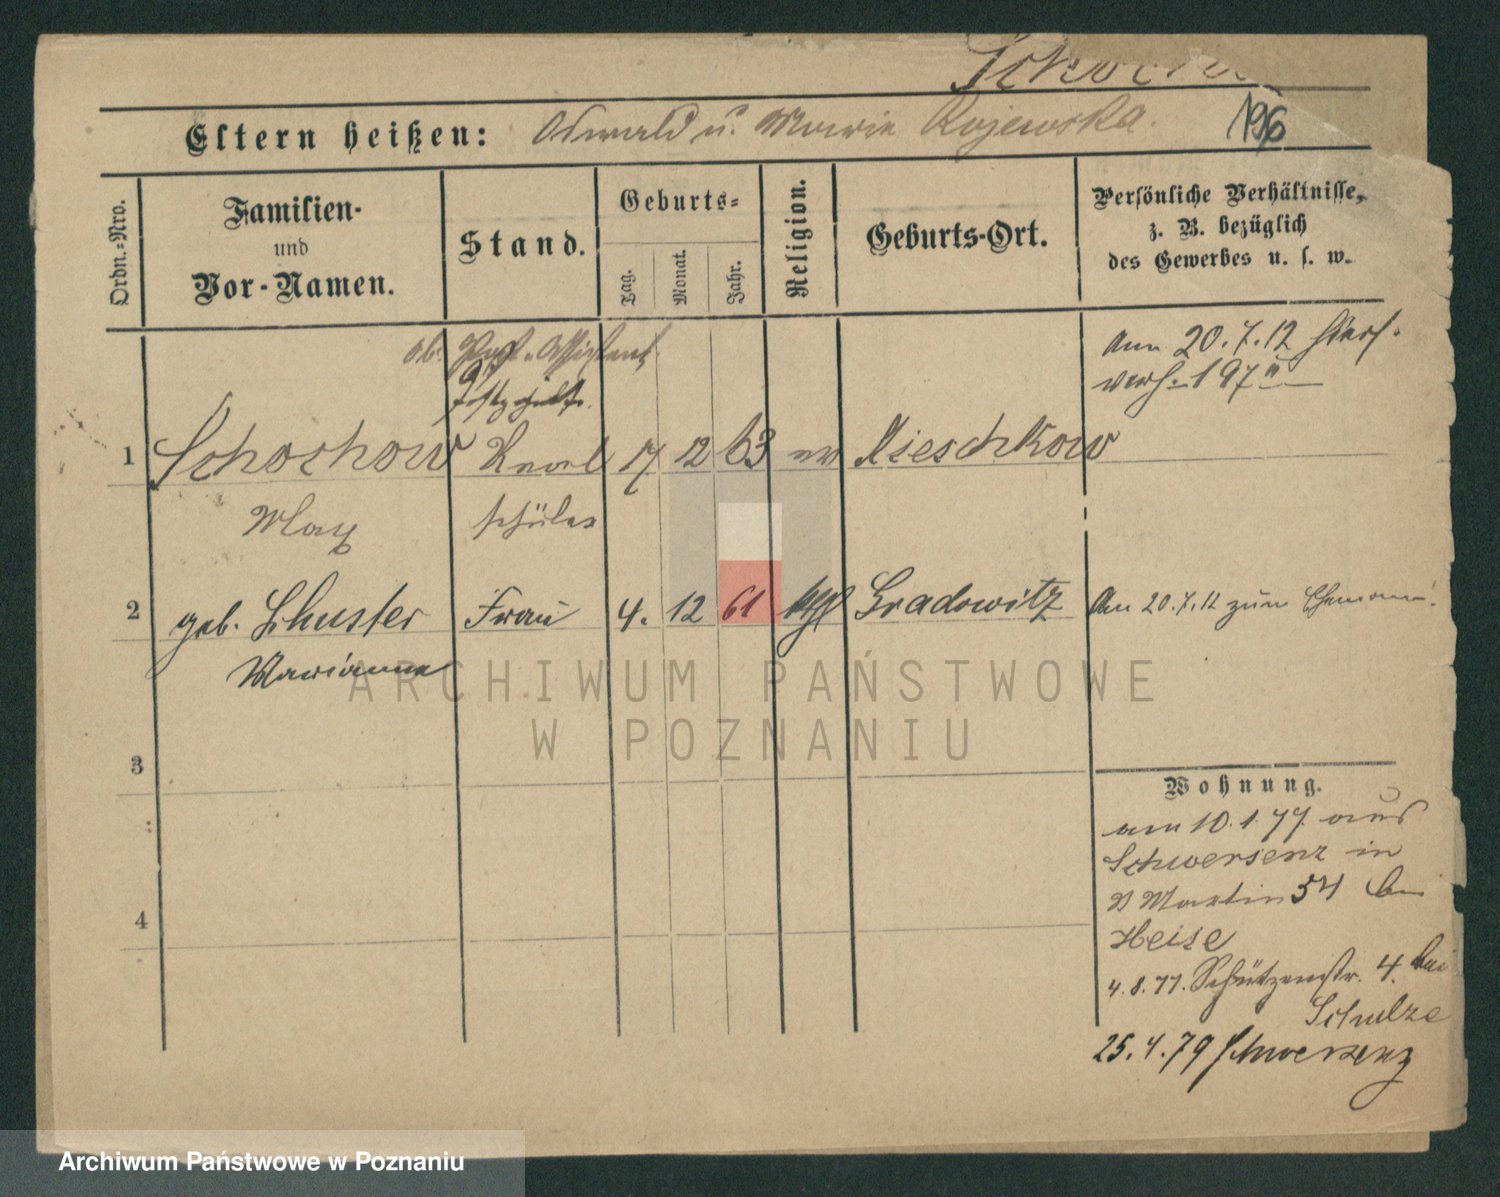 Schoch
Eltern heißen: Oswald u. Marie Rojewska.
196
Ordn.-Nro.
Familien-
und
Vor-Namen.
Stand.
Geburts-
Tag.
Monat.
Jahr.
Religion.
Geburts-Ort.
Persönliche Verhältnisse,
z. B. bezüglich
des Gewerbes u. s. w.
ob. Post-Assistent
am 20.7.12
1 Schochow Real 17 12 63 ev Mieschkow
Max schüler
2 geb. Schuster Frau 4. 12 61 kth Gradowitz Am 20.7.12 zum Ehemann.
Marianna
3
4
Wohnung.
am 10.1.77 aus
Schwersenz in
St Martin 54 bei
Heise
4.8.77. Schützenstr. 4. bei
Schulze
25.4.79 Schwersenz
ARCHIWUM PAŃSTWOWE
W POZNANIU
Archiwum Państwowe w Poznaniu